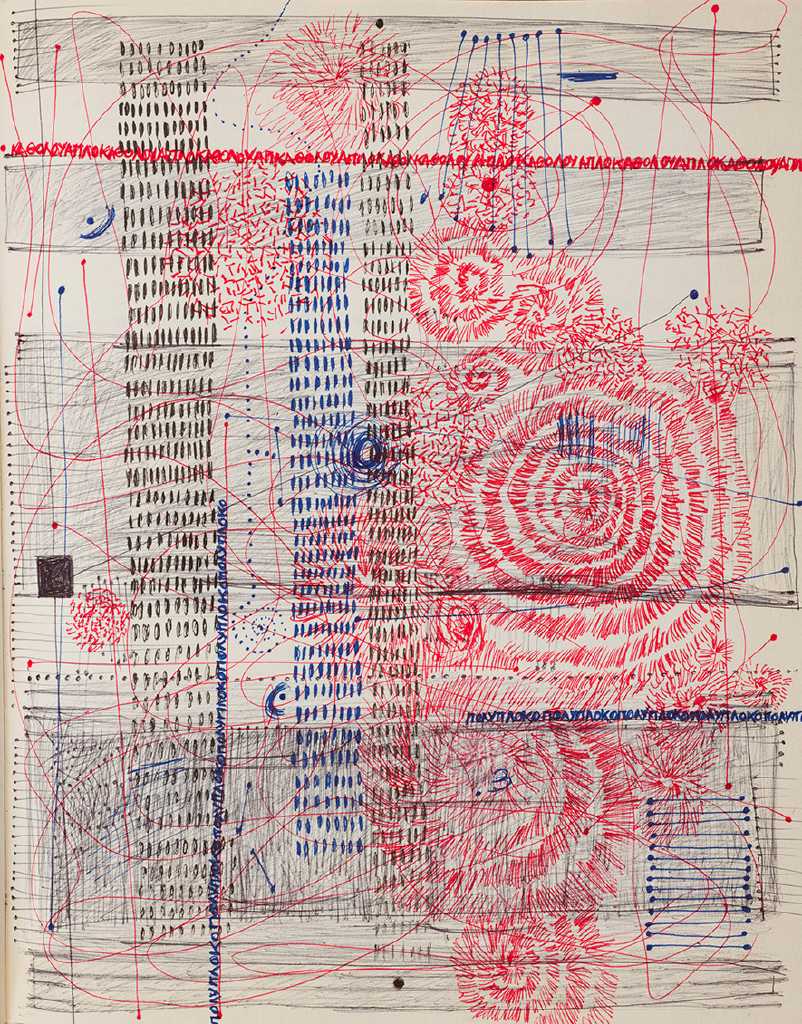 ΚΑΘΟΛΟΥΑΠΛΟΚΑΘΟΛΟΥΑΠΛΟΚΑΘΟΛΟΥΑΠΚΑΘΟΛΟΥΑΠΛΟΚΑΘΟΛΟΚΑΘΟΛΟΥΑΠΛΟΚΑΘΟΛΟΥΑΠΛΟΚΑΘΟΛΟΥΑΠΛΟΚΑΘΟΛΟΥΑΠ
ΠΟΛΥΠΛΟΚΟΠΟΛΥΠΛΟΚΟΠΟΛΥΠΛΟΚΟΠΟΛΥΠΛΟΚΟΠΟΛΥΠΛΟΚΟΠΟΛΥΠΛΟΚΟ
ΠΟΛΥΠΛΟΚΟΠΟΛΥΠΛΟΚΟΠΟΛΥΠΛΟΚΟΠΟΛΥΠΛΟΚΟΠΟΛΥΠ